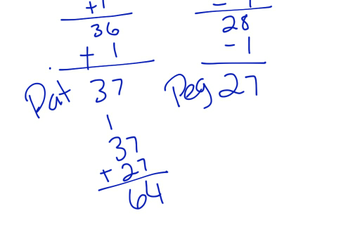 +1
36
+ 1
Pat 37
- 1
28
- 1
Peg 27
1
37
+ 27
64